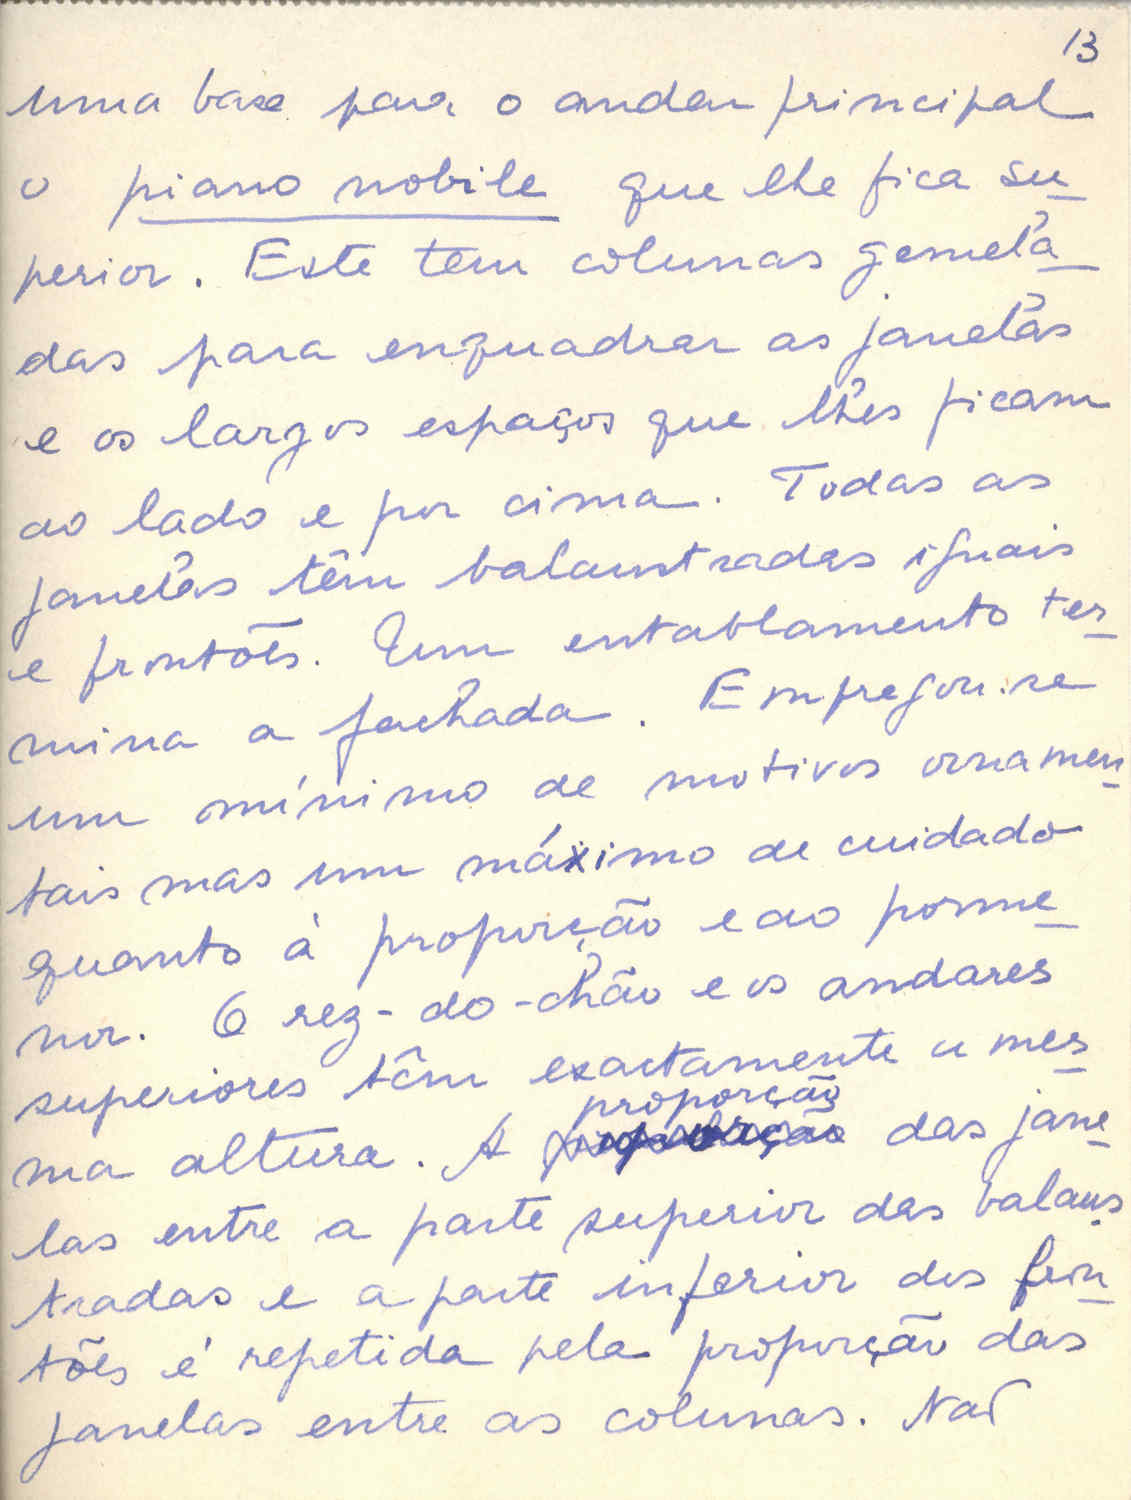 13
uma base para o andar principal
o piano nobile que lhe fica su-
perior. Este tem colunas gemela-
das para enquadrar as janelas
e os largos espaços que lhes ficam
ao lado e por cima. Todas as
janelas têm balaustradas iguais
e frontões. Um entablamento ter-
mina a fachada. Empregou-se
um mínimo de motivos ornamen-
tais mas um máximo de cuidado
quanto à proporção e ao porme-
nor. O rez-do-chão e os andares
superiores têm exactamente a mes-
proporção
ma altura. A das jane-
las entre a parte superior das balaus-
tradas e a parte inferior dos fron-
tões é repetida pela proporção das
janelas entre as colunas. Na